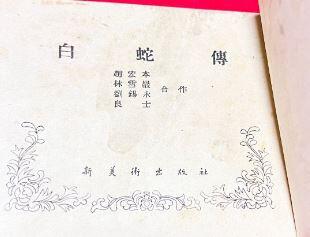 白蛇傳
趙宏本
林雪巖
劉錫永
良士
合作
新美術出版社